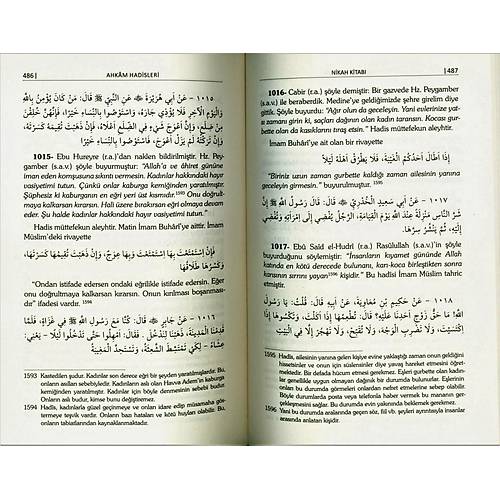 486 | AHKÂM HADİSLERİ
١٠١٥ - عَنْ أَبِي هُرَيْرَةَ ﷺ عَنِ النَّبِيِّ ﷺ قَالَ: مَنْ كَانَ يُؤْمِنُ بِاللَّهِ
وَالْيَوْمِ الْآخِرِ فَلَا يُؤْذِي جَارَهُ، وَاسْتَوْصُوا بِالنِّسَاءِ خَيْرًا، فَإِنَّهُنَّ خُلِقْنَ
مِنْ ضِلَعٍ، وَإِنَّ أَعْوَجَ شَيْءٍ فِي الضِّلَعِ أَعْلَاهُ، فَإِنْ ذَهَبْتَ تُقِيمُهُ كَسَرْتَهُ،
وَإِنْ تَرَكْتَهُ لَمْ يَزَلْ أَعْوَجَ، فَاسْتَوْصُوا بِالنِّسَاءِ خَيْرًا
1015- Ebu Hureyre (r.a.)'dan nakben bildirilmiştir. Hz. Pey-
gamber (s.a.v.) şöyle buyurmuştur: "Allah'a ve âhiret gününe
iman eden komşusuna sıkıntı vermesin. Kadınlar hakkındaki hayır
vasiyetimi tutun. Çünkü onlar kaburga kemiğinden yaratılmıştır.
Şüphesiz ki kaburganın en eğri yeri üst tarafıdır. 1593 Onu doğrult-
maya kalkarsan kırarsın. Hali üzere bırakırsan eğri olmaya devam
eder. Şu halde kadınlar hakkındaki hayır vasiyetimi tutun."
Hadis müttefekun aleyhtir. Matin İmam Buhârî'ye aittir. İmam
Müslim'deki rivayette
فَإِنِ اسْتَمْتَعْتَ بِهَا اسْتَمْتَعْتَ وَبِهَا عِوَجٌ، وَإِنْ ذَهَبْتَ تُقِيمُهَا كَسَرْتَهَا،
وَكَسْرُهَا طَلَاقُهَا
"Ondan istifade edersen ondaki eğrilikle istifade edersin. Eğer
onu doğrultmaya kalkarsan kırarsın. Onun kırılması boşanması-
dır" ifadesi vardır. 1594
١٠١٦ - عَنْ جَابِرٍ ﷺ قَالَ: كُنَّا مَعَ رَسُولِ اللَّهِ ﷺ فِي غَزَاةٍ، فَلَمَّا
قَدِمْنَا الْمَدِينَةَ، ذَهَبْنَا لِنَدْخُلَ. فَقَالَ: أَمْهِلُوا حَتَّى تَدْخُلُوا لَيْلًا. يَعْنِي:
عِشَاءً - لِكَيْ تَمْتَشِطَ الشَّعِثَةُ، وَتَسْتَحِدَّ الْمَغِيبَةُ
1593 Kastedilen şudur. Kadınlar son derece eğri bir şeyden yaratılmışlardır. Bu,
onların asılları sebebiyledir. Kadınların aslı olan Havva Adem'in kaburga
kemiğinden yaratılmıştır. Bu durum kadınların eğri olmasına sebep olur.
Onların aslı budur, kimse bunu değiştiremez.
1594 Hadis, kadınlarla güzel geçinmeye ve onları idare edip müsamaha gös-
termeye teşvik eder. Onların bazı hataları ve kötü huyları olabilir. Bu,
onların tabiatlarından kaynaklanmaktadır.
NİKAH KİTABI | 487
1016- Cabir (r.a.) şöyle demiştir: Bir gazvede Hz. Peygamber
(s.a.v.) ile beraberdik. Medine'ye geldiğimizde şehre girelim diye
gittik. Şöyle buyurdu: "Ağır olun da geceleyin girin. Yani evlerinize yat-
sı zamanı girin ki, saçları dağınık olan kadın taransın. Kocası gur-
bette olan da kasıklarını tıraş etsin." Hadis müttefekun aleyhtir.
İmam Buhârî'ye ait olan bir rivayette
إِذَا أَطَالَ أَحَدُكُمُ الْغَيْبَةَ، فَلَا يَطْرُقْ أَهْلَهُ لَيْلًا
"Biriniz uzun zaman gurbette kaldığı zaman ailesinin yanına
geceleyin girmesin." buyurulmuştur. 1595
١٠١٧ - عَنْ أَبِي سَعِيدٍ الْخُدْرِيِّ ﷺ قَالَ: قَالَ رَسُولُ اللَّهِ ﷺ: إِنَّ
شَرَّ النَّاسِ مَنْزِلَةً عِنْدَ اللَّهِ يَوْمَ الْقِيَامَةِ، الرَّجُلُ يُفْضِي إِلَى امْرَأَتِهِ وَتُفْضِي
إِلَيْهِ، ثُمَّ يَنْشُرُ سِرَّهَا.
1017- Ebû Said el-Hudrî (r.a.) Rasûlullah (s.a.v.)'in şöyle
buyurduğunu söylemiştir: "İnsanların kıyamet gününde Allah
katında en kötü derecede bulunanı, karı-koca birleştikten sonra
karısının sırrını yayan 1596 kişidir." Bu hadisi İmam Müslim tahric
etmiştir.
١٠١٨ - عَنْ حَكِيمِ بْنِ مُعَاوِيَةَ، عَنْ أَبِيهِ، قَالَ: قُلْتُ: يَا رَسُولَ
اللَّهِ! مَا حَقُّ زَوْجِ أَحَدِنَا عَلَيْهِ؟ قَالَ: تُطْعِمُهَا إِذَا أَكَلْتَ، وَتَكْسُوهَا إِذَا
اكْتَسَيْتَ، وَلَا تَضْرِبِ الْوَجْهَ، وَلَا تُقَبِّحْ، وَلَا تَهْجُرْ إِلَّا فِي الْبَيْتِ
1595 Hadis, ailesinin yanına gelen kişiye evine yaklaştığı zaman onun geldiğini
hissetmeleri ve ondan dolayı hazırlık yapmaları için haber vermesini
öğretmektedir. Bir defada hücum etmesi gerekmez. Eşleri gurbette olan ka-
dınlar genellikle uygun olmayan dağınık bir durumda bulunurlar.
Böyle durumlarda posta veya telefonla haber vermek bu mananın ger-
çekleşmesini sağlar. Bu durumda evin yakınında beklemek gerekmez.
1596 Yani bu durumda aralarında geçen söz, fiil vb. şeyleri ayrıntısıyla insanlar
arasında anlatan kişidir.